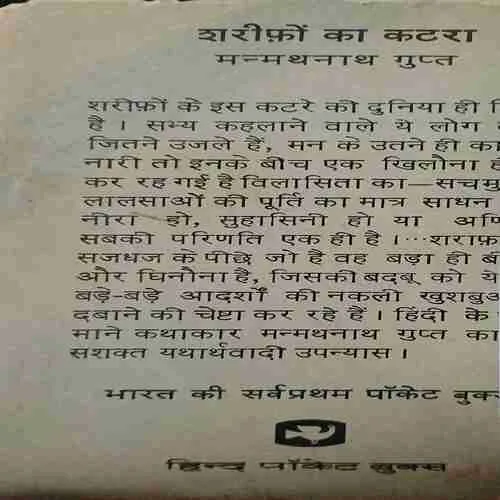 शरीफ़ों का कटरा
मन्मथनाथ गुप्त
शरीफ़ों के इस कटरे की दुनिया ही
है । सभ्य कहलाने वाले ये लोग
जितने उजले हैं, मन के उतने ही का
नारी तो इनके बीच एक खिलौना
कर रह गई है विलासिता का—सचमु
लालसाओं की पूर्ति का मात्र साधन
नीरा हो, सुहासिनी हो या
सबकी परिणति एक ही है ।···शराफ़
सजधज के पीछे जो है वह बड़ा ही
और घिनौना है, जिसकी बदबू को ये
बड़े-बड़े आदर्शों की नकली खुशबु
दबाने की चेष्टा कर रहे हैं । हिंदी के
माने कथाकार मन्मथनाथ गुप्त का
सशक्त यथार्थवादी उपन्यास ।
भारत की सर्वप्रथम पॉकेट बुक्स
हिन्द पॉकेट बुक्स